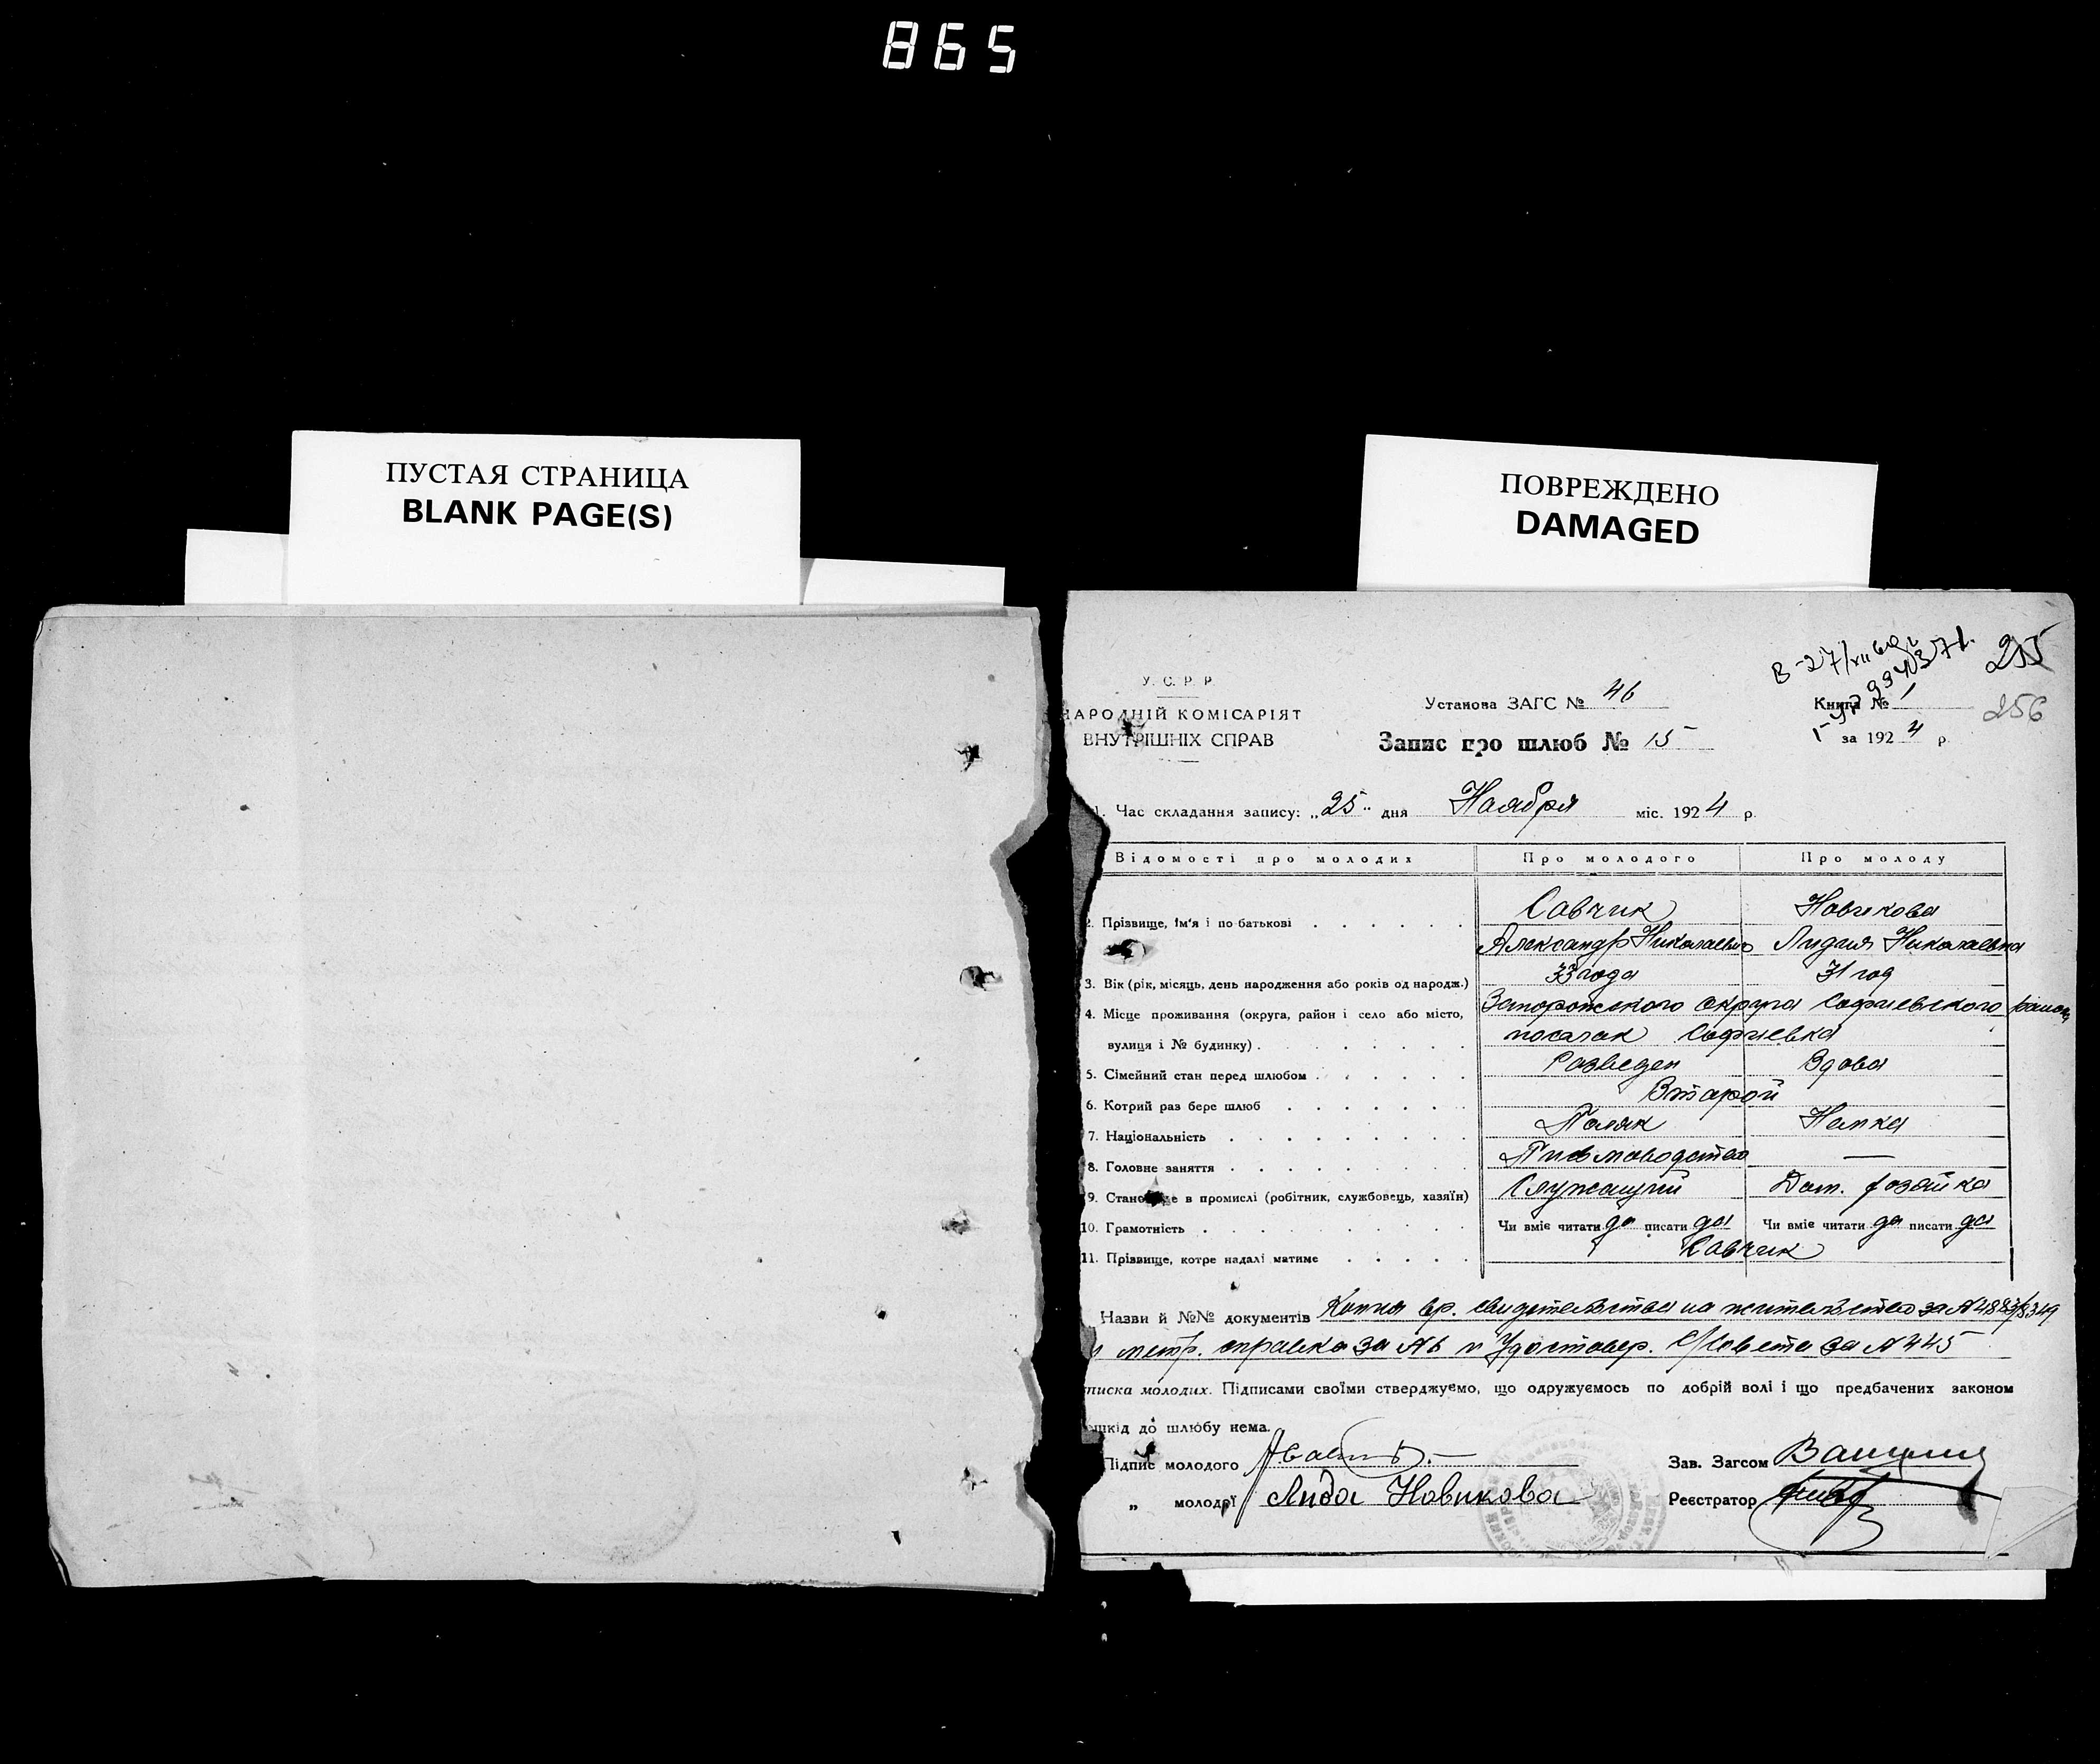 865
ПУСТАЯ СТРАНИЦА
BLANK PAGE(S)
ПОВРЕЖДЕНО
DAMAGED
255
256
У. С. Р. Р.
НАРОДНІЙ КОМІСАРІЯТ
ВНУТРІШНІХ СПРАВ
Установа ЗАГС № 46
Запис про шлюб № 15
Книга № 1
за 1924 р.
1. Час складання запису: „25" дня Ноября міс. 1924 р.
Відомості про молодих Про молодого Про молоду
2. Прізвище, ім'я і по батькові . . . . . . Савчик Новикова
Александр Николаевич Лидия Николаевна
3. Вік (рік, місяць, день народження або років од народж.) 33 года 31 год
4. Місце проживання (округа, район і село або місто, Запорожского округа Софиевского района
вулиця і № будинку) . . . . . . . поселок Софиевка
5. Сімейний стан перед шлюбом . . . . . . Разведен Вдова
6. Котрий раз бере шлюб . . . . . . . Второй
7. Національність . . . . . . . . . Поляк Немка
8. Головне заняття . . . . . . . . . Письмоводство —
9. Становище в промислі (робітник, службовець, хазяїн) Служащий Дом. хозяйка
10. Грамотність . . . . . . . . Чи вміє читати да писати да Чи вміє читати да писати да
11. Прізвище, котре надалі матиме . . . . . Савчик
Назви й №№ документів Копия вр. свидетельства на жительство за № 4883/8349
и метр. справка за № 6 и Удостовер. С/Совета за № 445
писка молодих. Підписами своїми стверджуємо, що одружуємось по добрій волі і що предбачених законом
шкід до шлюбу нема.
Підпис молодого
Зав. Загсом
„ молодої Лида Новикова
Реєстратор